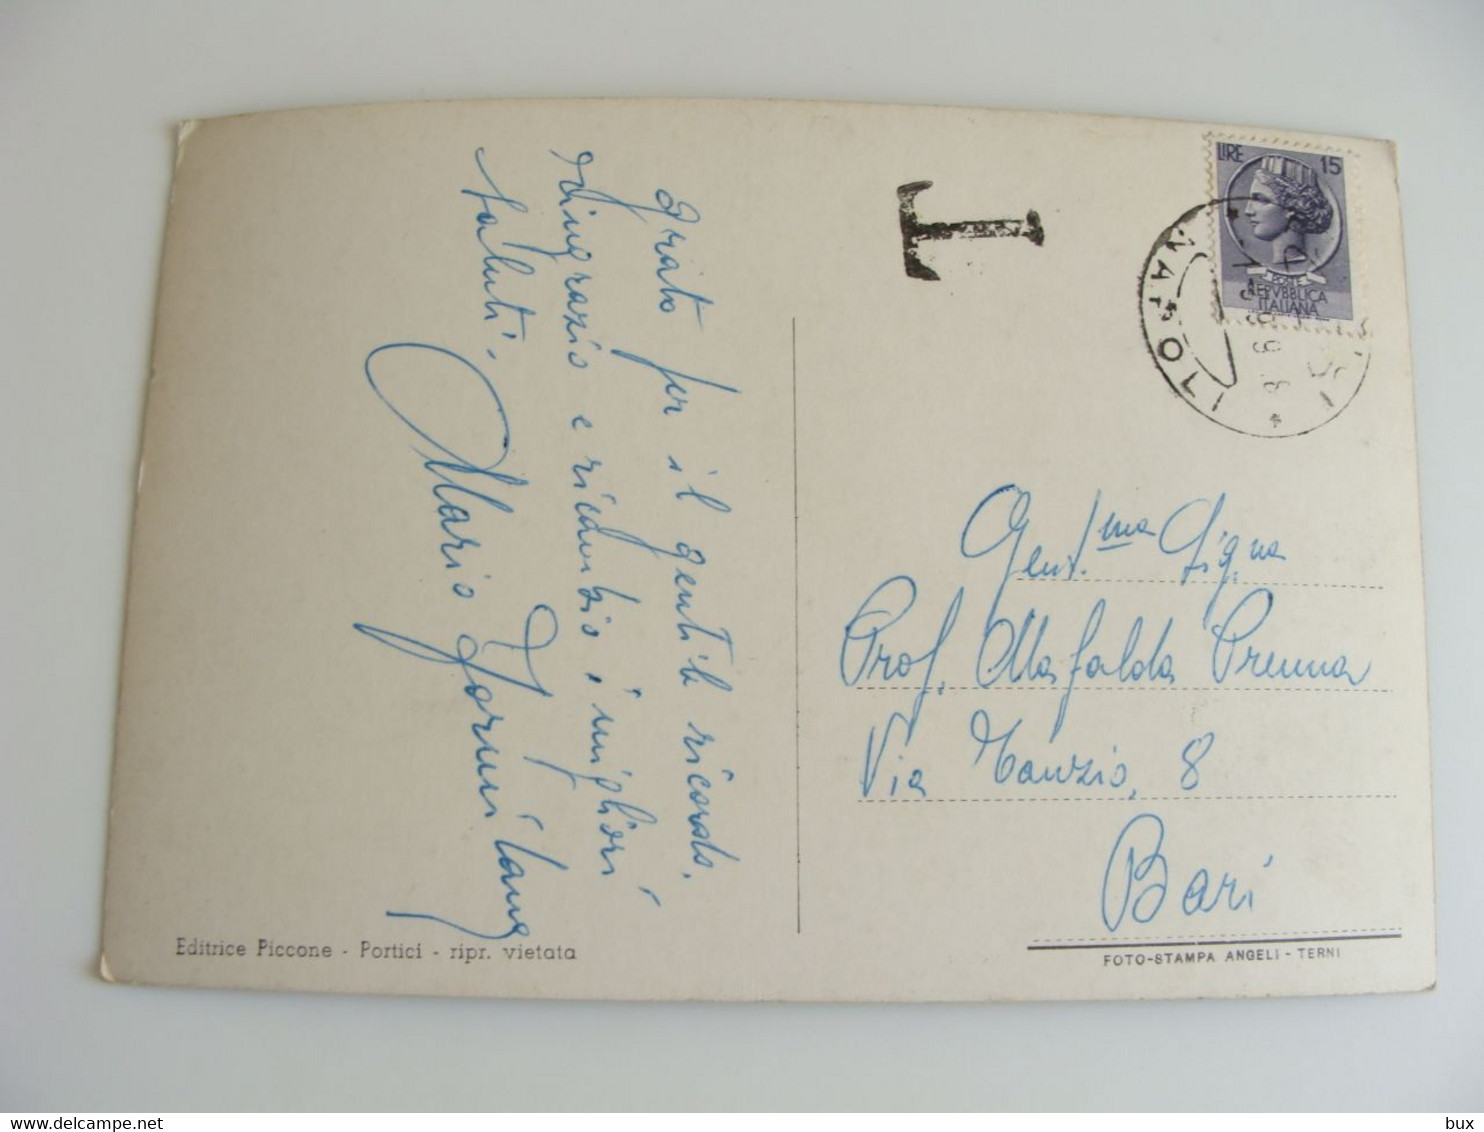 grato per il gentile ricordo,
ringrazio e ricambio i migliori
saluti.
Mario
LIRE 15
POSTE
REPVBBLICA
ITALIANA
NAPOLI
T
Gent.ma Sig.na
Prof. Mafalda Prenna
Via Tanzio, 8
Bari
Editrice Piccone - Portici - ripr. vietata
FOTO-STAMPA ANGELI - TERNI
bux